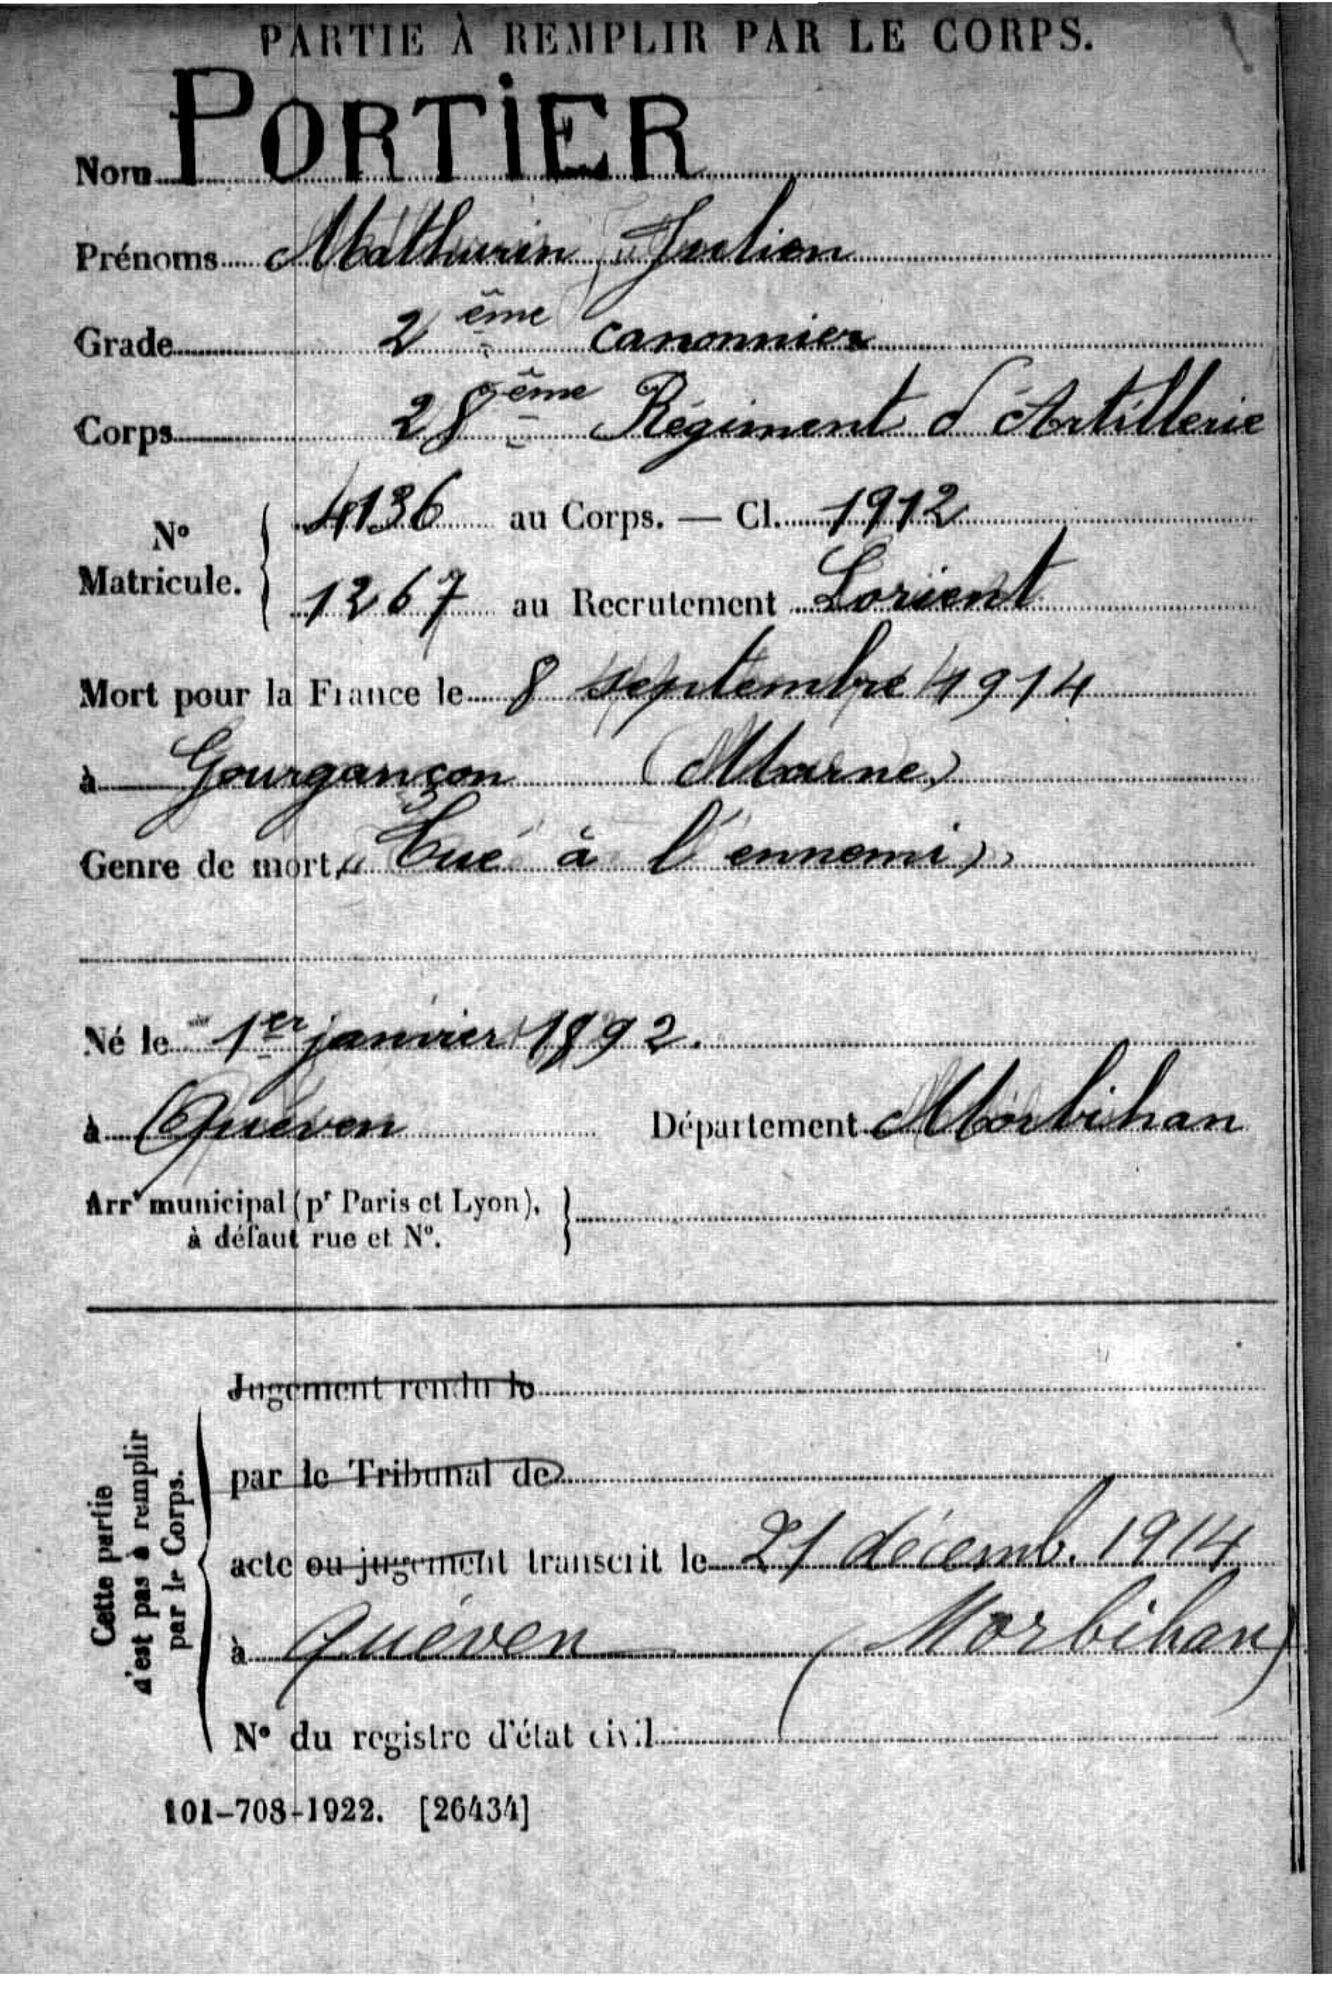 PARTIE À REMPLIR PAR LE CORPS.
Nom PORTIER
Prénoms Mathurin Julien
Grade 2ème canonnier
Corps 28ème Régiment d'Artillerie
No Matricule. { 4136 au Corps. — Cl. 1912
1267 au Recrutement Lorient
Mort pour la France le 8 septembre 1914
à Gourgançon (Marne)
Genre de mort « Tué à l'ennemi »
Né le 1er janvier 1892.
à Quéven Département Morbihan
Arrt municipal (pr Paris et Lyon), }
à défaut rue et No.
Cette partie
n'est pas à remplir
par le Corps.
Jugement rendu le
par le Tribunal de
acte ou jugement transcrit le 21 décemb. 1914
à Quéven (Morbihan)
No du registre d'état civil
101-708-1922. [26434]